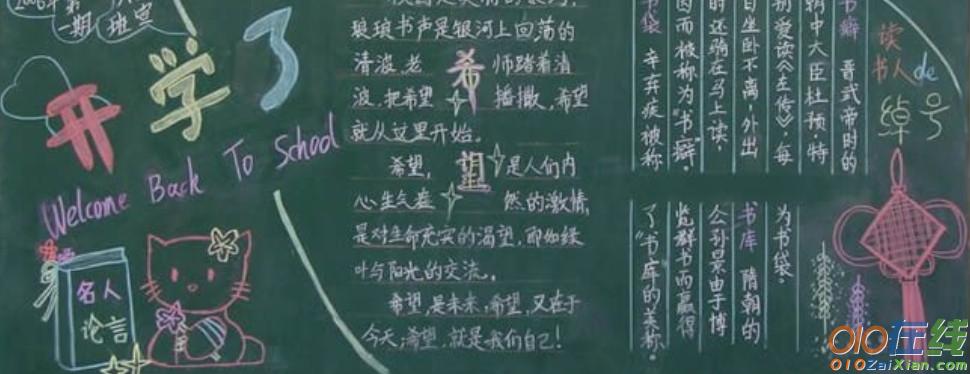 一期 班宣
开学了
Welcome Back To School
名人
论言
琅琅书声是银河上回荡的
清波,老 师踏着清
波,把希望 播撒,希望
就从这里开始。
希望
希望, 是人们内
心生气盎 然的激情,
是对生命充实的渴望,即如绿
叶与阳光的交流。
希望,是未来,希望,又在于
今天,希望,就是我们自己!
读
书人de
绰号
书癖 晋武帝时的
朝中大臣杜预特
别爱读《左传》,每
日坐卧不离,外出
时还骑在马上读,
因而被称为"书癖"。
书袋 辛弃疾被称
为书袋。
书库 隋朝的
公孙景由于博
览群书而赢得
了"书库"的美称。
010在线
010ZaiXian.com